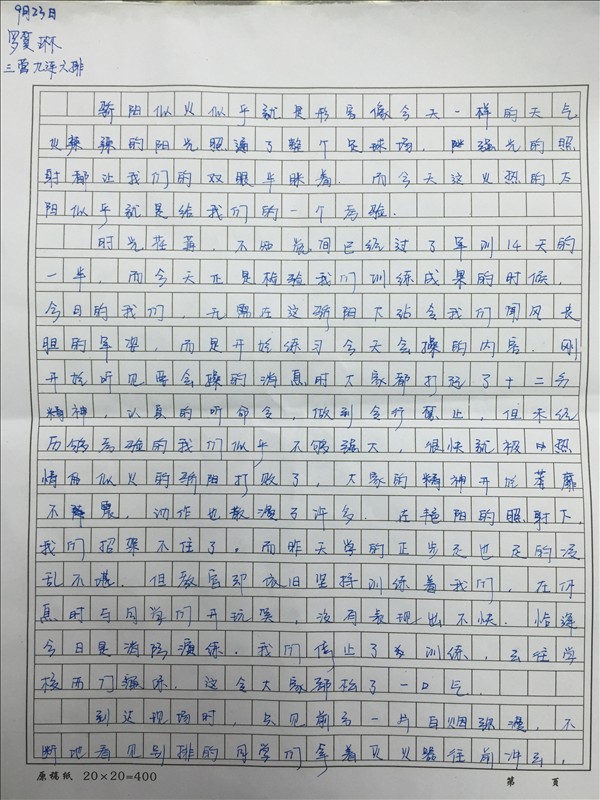 9月23日
罗夏琳
三营九连六排
骄阳似火似乎就是形容像今天一样的天气
火辣辣的阳光照遍了整个足球场. 强光的照
射都让我们的双眼半眯着. 而今天这火热的太
阳似乎就是给我们的一个考验.
时光荏苒, 不知觉间已经过了军训14天的
一半, 而今天正是检验我们训练成果的时候.
今日的我们, 无需在这骄阳下站令我们闻风丧
胆的军姿, 而是开始练习今天会操的内容. 刚
开始听见要会操的消息时大家都打起了十二分
精神, 认真的听命令, 做到令行禁止, 但未经
历够考验的我们似乎不够强大, 很快就被热
情似火的骄阳打败了, 大家的精神开始萎靡
不振, 动作也散漫了许多. 在艳阳的照射下,
我们招架不住了. 而昨天学的正步走也走的凌
乱不堪. 但教官却依旧坚持训练着我们, 在休
息时与同学们开玩笑, 没有表现出不快. 恰逢
今日是消防演练. 我们停止了训练, 去往学
校西门演练. 这令大家都松了一口气.
到达现场时, 只见前方一片白烟弥漫, 不
断地看见别排的同学们拿着灭火器往前冲去,
原稿纸 20×20=400
第 页